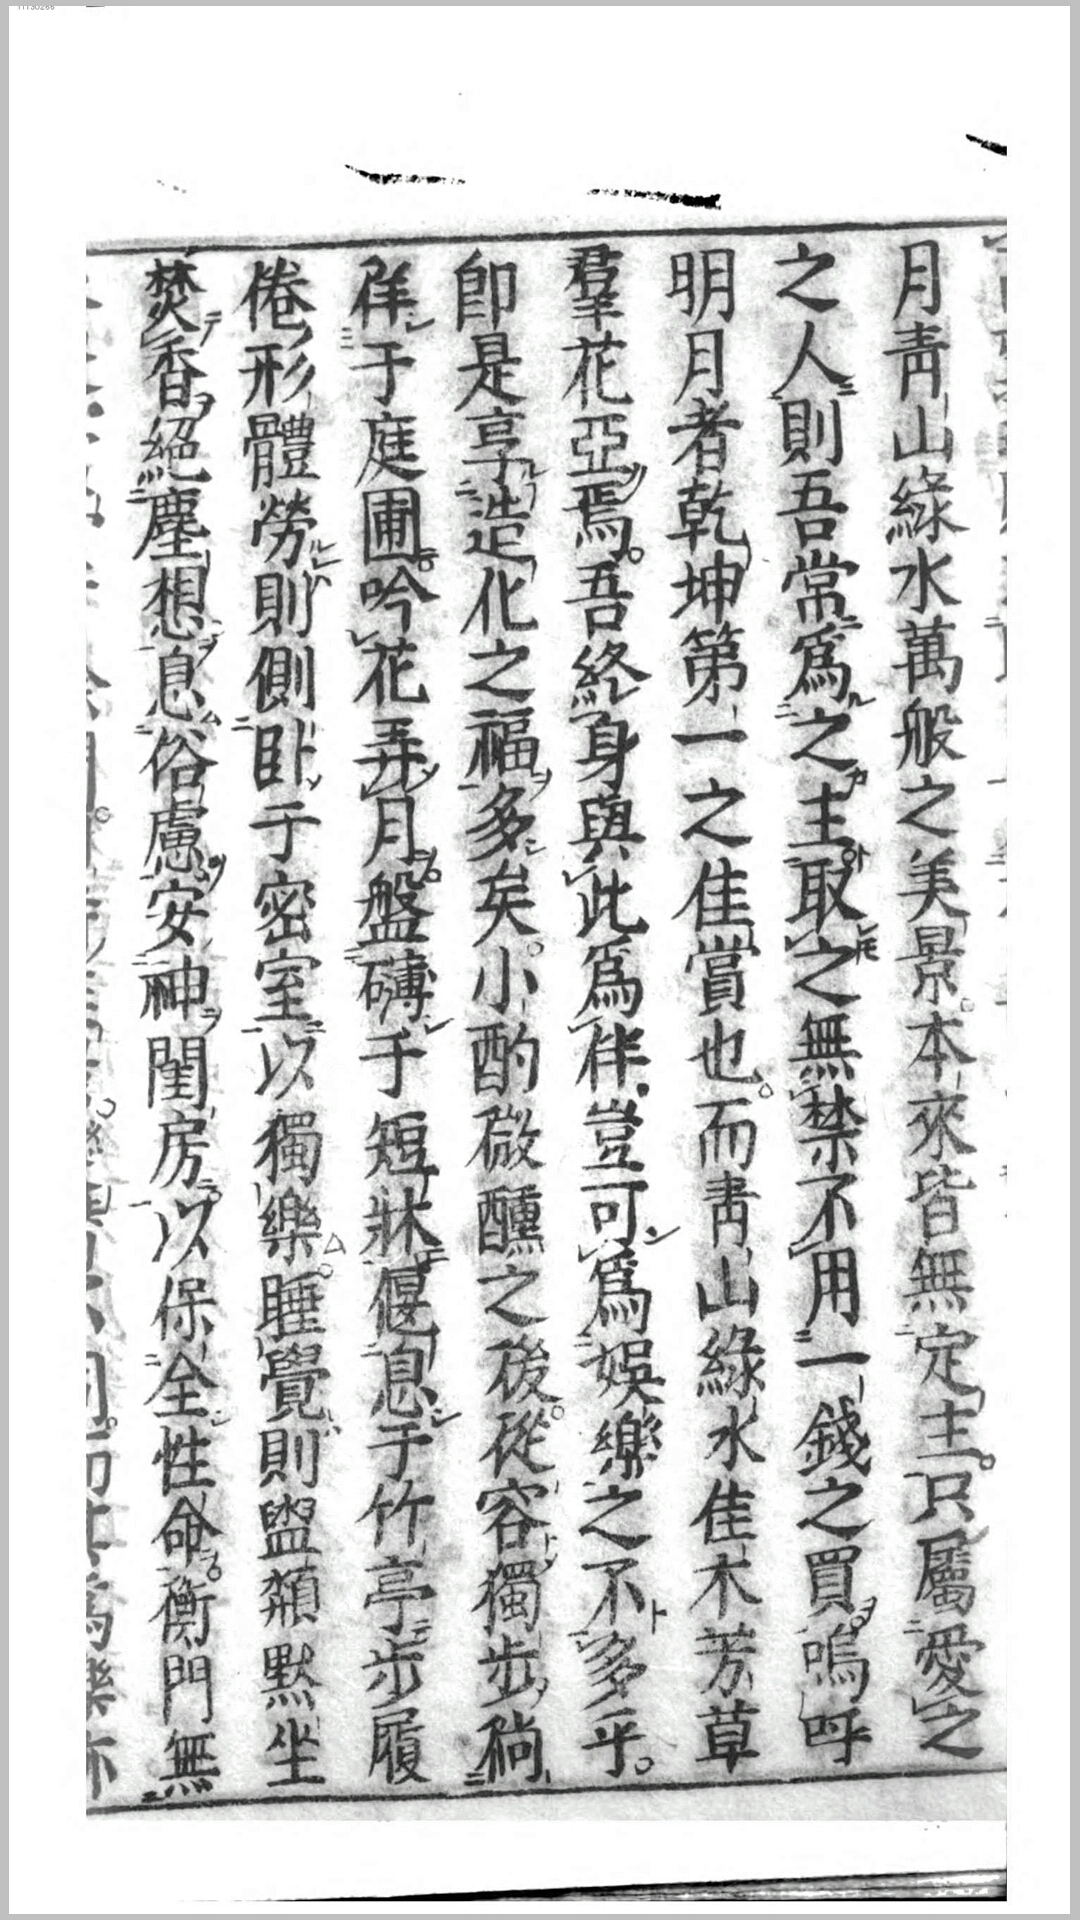 月青山綠水萬般之美景本來皆無定主只屬愛之
之人則吾常爲之主取之無禁不用一錢之買嗚呼
明月者乾坤第一之佳賞也而青山綠水佳木芳草
羣花亞焉吾終身與此爲伴豈可爲娛樂之不多乎
即是享造化之福多矣小酌微醺之後從容獨步徜
徉于庭圃吟花弄月盤礴于短牀偃息于竹亭步履
倦形體勞則側臥于密室以獨樂睡覺則盥頮默坐
焚香絕塵想息俗慮安神閨房以保全性命衡門無